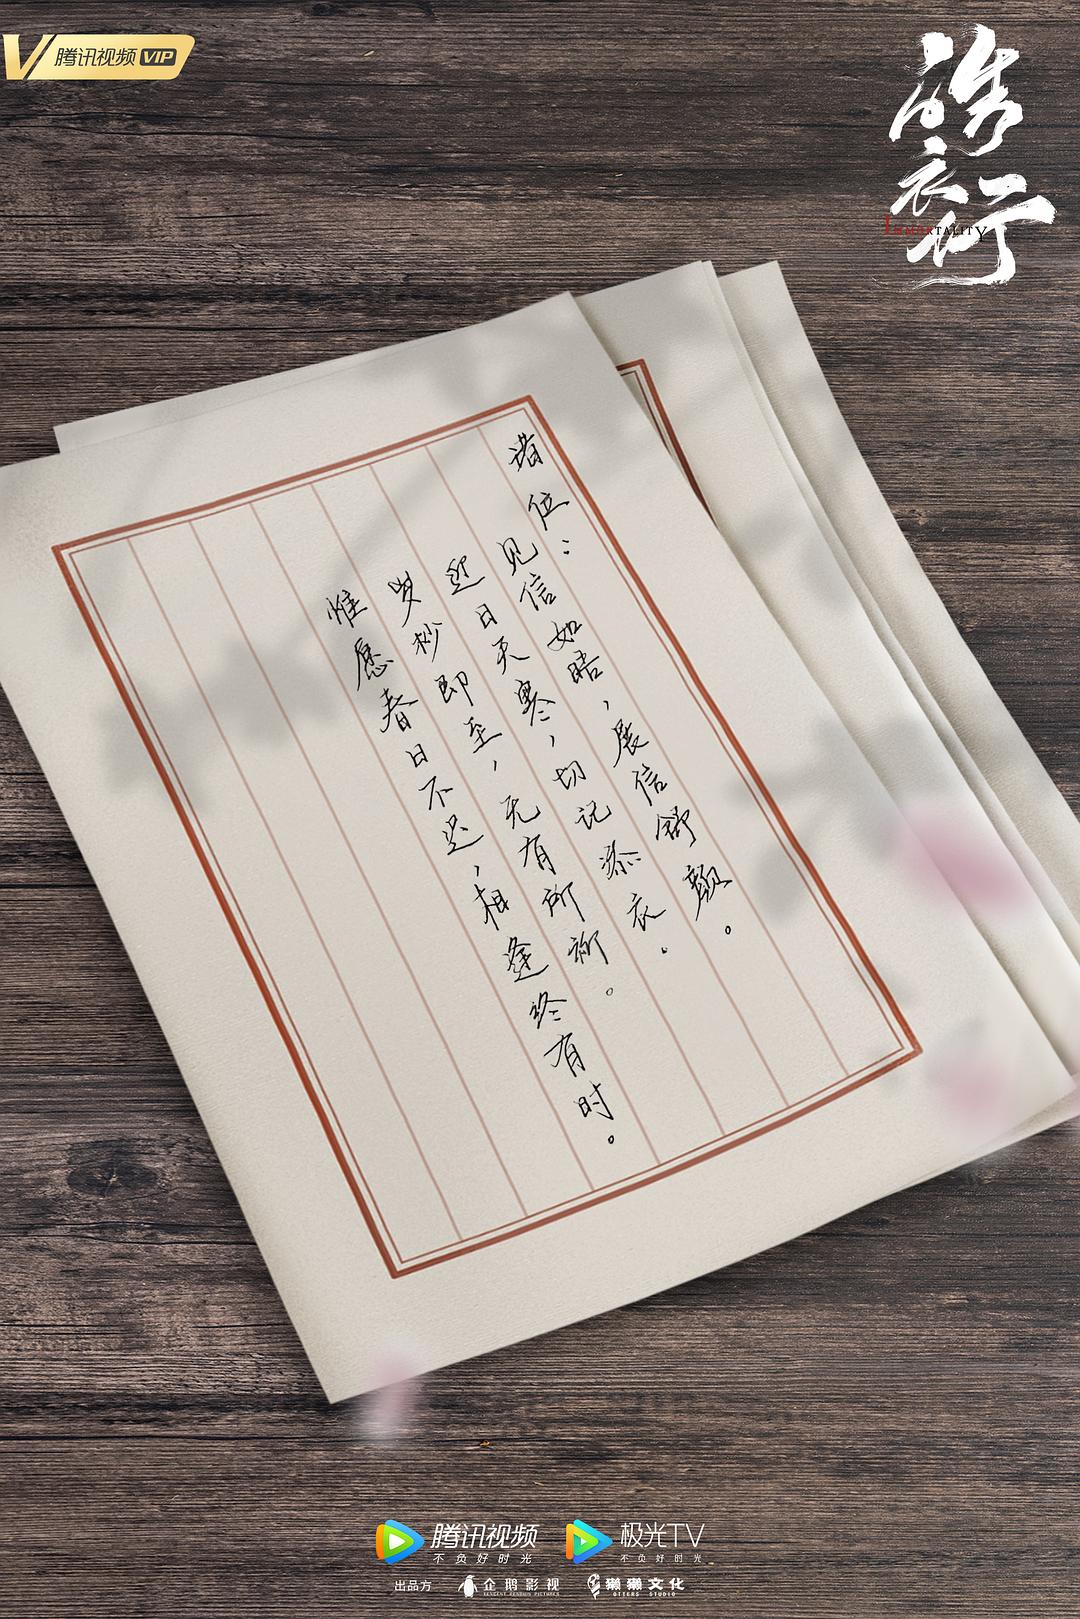 腾讯视频VIP
皓衣行
IMMORTALITY
诸位：
见信如晤，展信舒颜。
近日天寒，切记添衣。
岁杪即至，无有所祈。
惟愿春日不迟，相逢终有时。
腾讯视频
不负好时光
极光TV
不负好时光
出品方
企鹅影视
TENCENT PENGUIN PICTURES
獭獭文化
OTTERS STUDIO